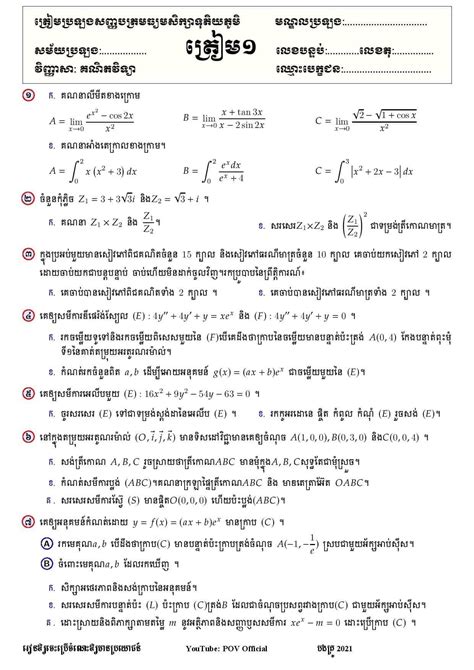 ត្រៀមប្រឡងសញ្ញាបត្រមធ្យមសិក្សាទុតិយភូមិ មណ្ឌលប្រឡង:
សម័យប្រឡង: ត្រៀម១ លេខបន្ទប់: លេខតុ:
វិញ្ញាសា: គណិតវិទ្យា ឈ្មោះបេក្ខជន:
១ ក. គណនាលីមីតខាងក្រោម
A = lim x→0 (e^{x²} − cos 2x)/x² B = lim x→0 (x + tan 3x)/(x − 2 sin 2x) C = lim x→0 (√2 − √(1 + cos x))/x²
ខ. គណនាអាំងតេក្រាលខាងក្រោម។
A = ∫₀² x (x² + 3) dx B = ∫₀² (eˣ dx)/(eˣ + 4) C = ∫₀³ |x² + 2x − 3| dx
២ ចំនួនកុំផ្លិច Z₁ = 3 + 3√3i និង Z₂ = √3 + i ។
ក. គណនា Z₁ × Z₂ និង Z₁/Z₂។ ខ. សរសេរ Z₁×Z₂ និង (Z₁/Z₂)² ជាទម្រង់ត្រីកោណមាត្រ។
៣ ក្នុងប្រអប់មួយមានសៀវភៅពិជគណិតចំនួន 15 ក្បាល និងសៀវភៅធរណីមាត្រចំនួន 10 ក្បាល គេចាប់យកសៀវភៅ 2 ក្បាល
ដោយចាប់យកជាបន្តបន្ទាប់ ចាប់ហើយមិនដាក់ចូលវិញ។រកប្រូបាបនៃព្រឹត្តិការណ៍៖
ក. គេចាប់បានសៀវភៅពិជគណិតទាំង 2 ក្បាល ។ ខ. គេចាប់បានសៀវភៅធរណីមាត្រទាំង 2 ក្បាល ។
៤ គេឲ្យសមីការឌីផេរ៉ង់ស្យែល (E) : 4y′′ + 4y′ + y = xeˣ និង (F) : 4y′′ + 4y′ + y = 0 ។
ក. រកចម្លើយទូទៅនិងរកចម្លើយពិសេសមួយនៃ (F)បើគេដឹងថាក្រាបនៃចម្លើយមានបន្ទាត់ប៉ះត្រង់ A(0, 4) កែងបន្ទាត់ពុះមុំ
ទី១នៃកាត់តម្រុយអរតូណរម៉ាល់។
ខ. កំណត់រកចំនួនពិត a, b ដើម្បីអោយអនុគមន៍ g(x) = (ax + b)eˣ ជាចម្លើយមួយនៃ (E)។
៥ គេឲ្យសមីការអេលីបមួយ (E) : 16x² + 9y² − 54y − 63 = 0 ។
ក. ចូរសរសេរ (E) ទៅជាទម្រង់ស្តង់ដានៃអេលីប (E) ។ ខ. រកកូអរដោនេ ផ្ចិត កំពូល កំណុំ (E) រួចសង់ (E)។
៦ នៅក្នុងតម្រុយអរតូណរម៉ាល់ (O, i⃗, j⃗, k⃗) មានទិសដៅវិជ្ជមានគេឲ្យចំណុច A(1, 0, 0), B(0, 3, 0) និងC(0, 0, 4) ។
ក. សង់ត្រីកោណ A, B, C រួចស្រាយថាត្រីកោណABC មានមុំក្នុងA, B, Cសុទ្ធតែជាមុំស្រួច។
ខ. កំណត់សមីការប្លង់ (ABC)។គណនាក្រឡាផ្ទៃត្រីកោណ ABC និង មាឌតេត្រាអែត OABC ។
គ. សរសេរសមីការស្វ៊ែ (S) មានផ្ចិតO(0, 0, 0) ហើយប៉ះប្លង់(ABC)។
៧ គេឲ្យអនុគមន៍កំណត់ដោយ y = f(x) = (ax + b)eˣ មានក្រាប (C) ។
A រកមេគុណa, b បើដឹងថាក្រាប(C) មានបន្ទាត់ប៉ះក្រាបត្រង់ចំណុច A(−1, −1/e) ស្របជាមួយអ័ក្សអាប់ស៊ីស។
B ចំពោះមេគុណa, b ដែលរកឃើញ ។
ក. សិក្សាអថេរភាពនិងសង់ក្រាបនៃអនុគមន៍។
ខ. សរសេរសមីការបន្ទាត់ប៉ះ (L) ប៉ះក្រាប (C)ត្រង់B ដែលជាចំណុចប្រសព្វរវាងក្រាប(C) ជាមួយអ័ក្សអាប់ស៊ីស។
គ. ពិភាក្សាទៅតាមតម្លៃ m នូវអត្ថិភាពនិងសញ្ញាឬសសមីការ xeˣ − m = 0 ដោយប្រើក្រាប (C) ។
រៀនគិតរកឃើញដោយខ្លួនឯង YouTube: POV Official បងគ្រូ 2021